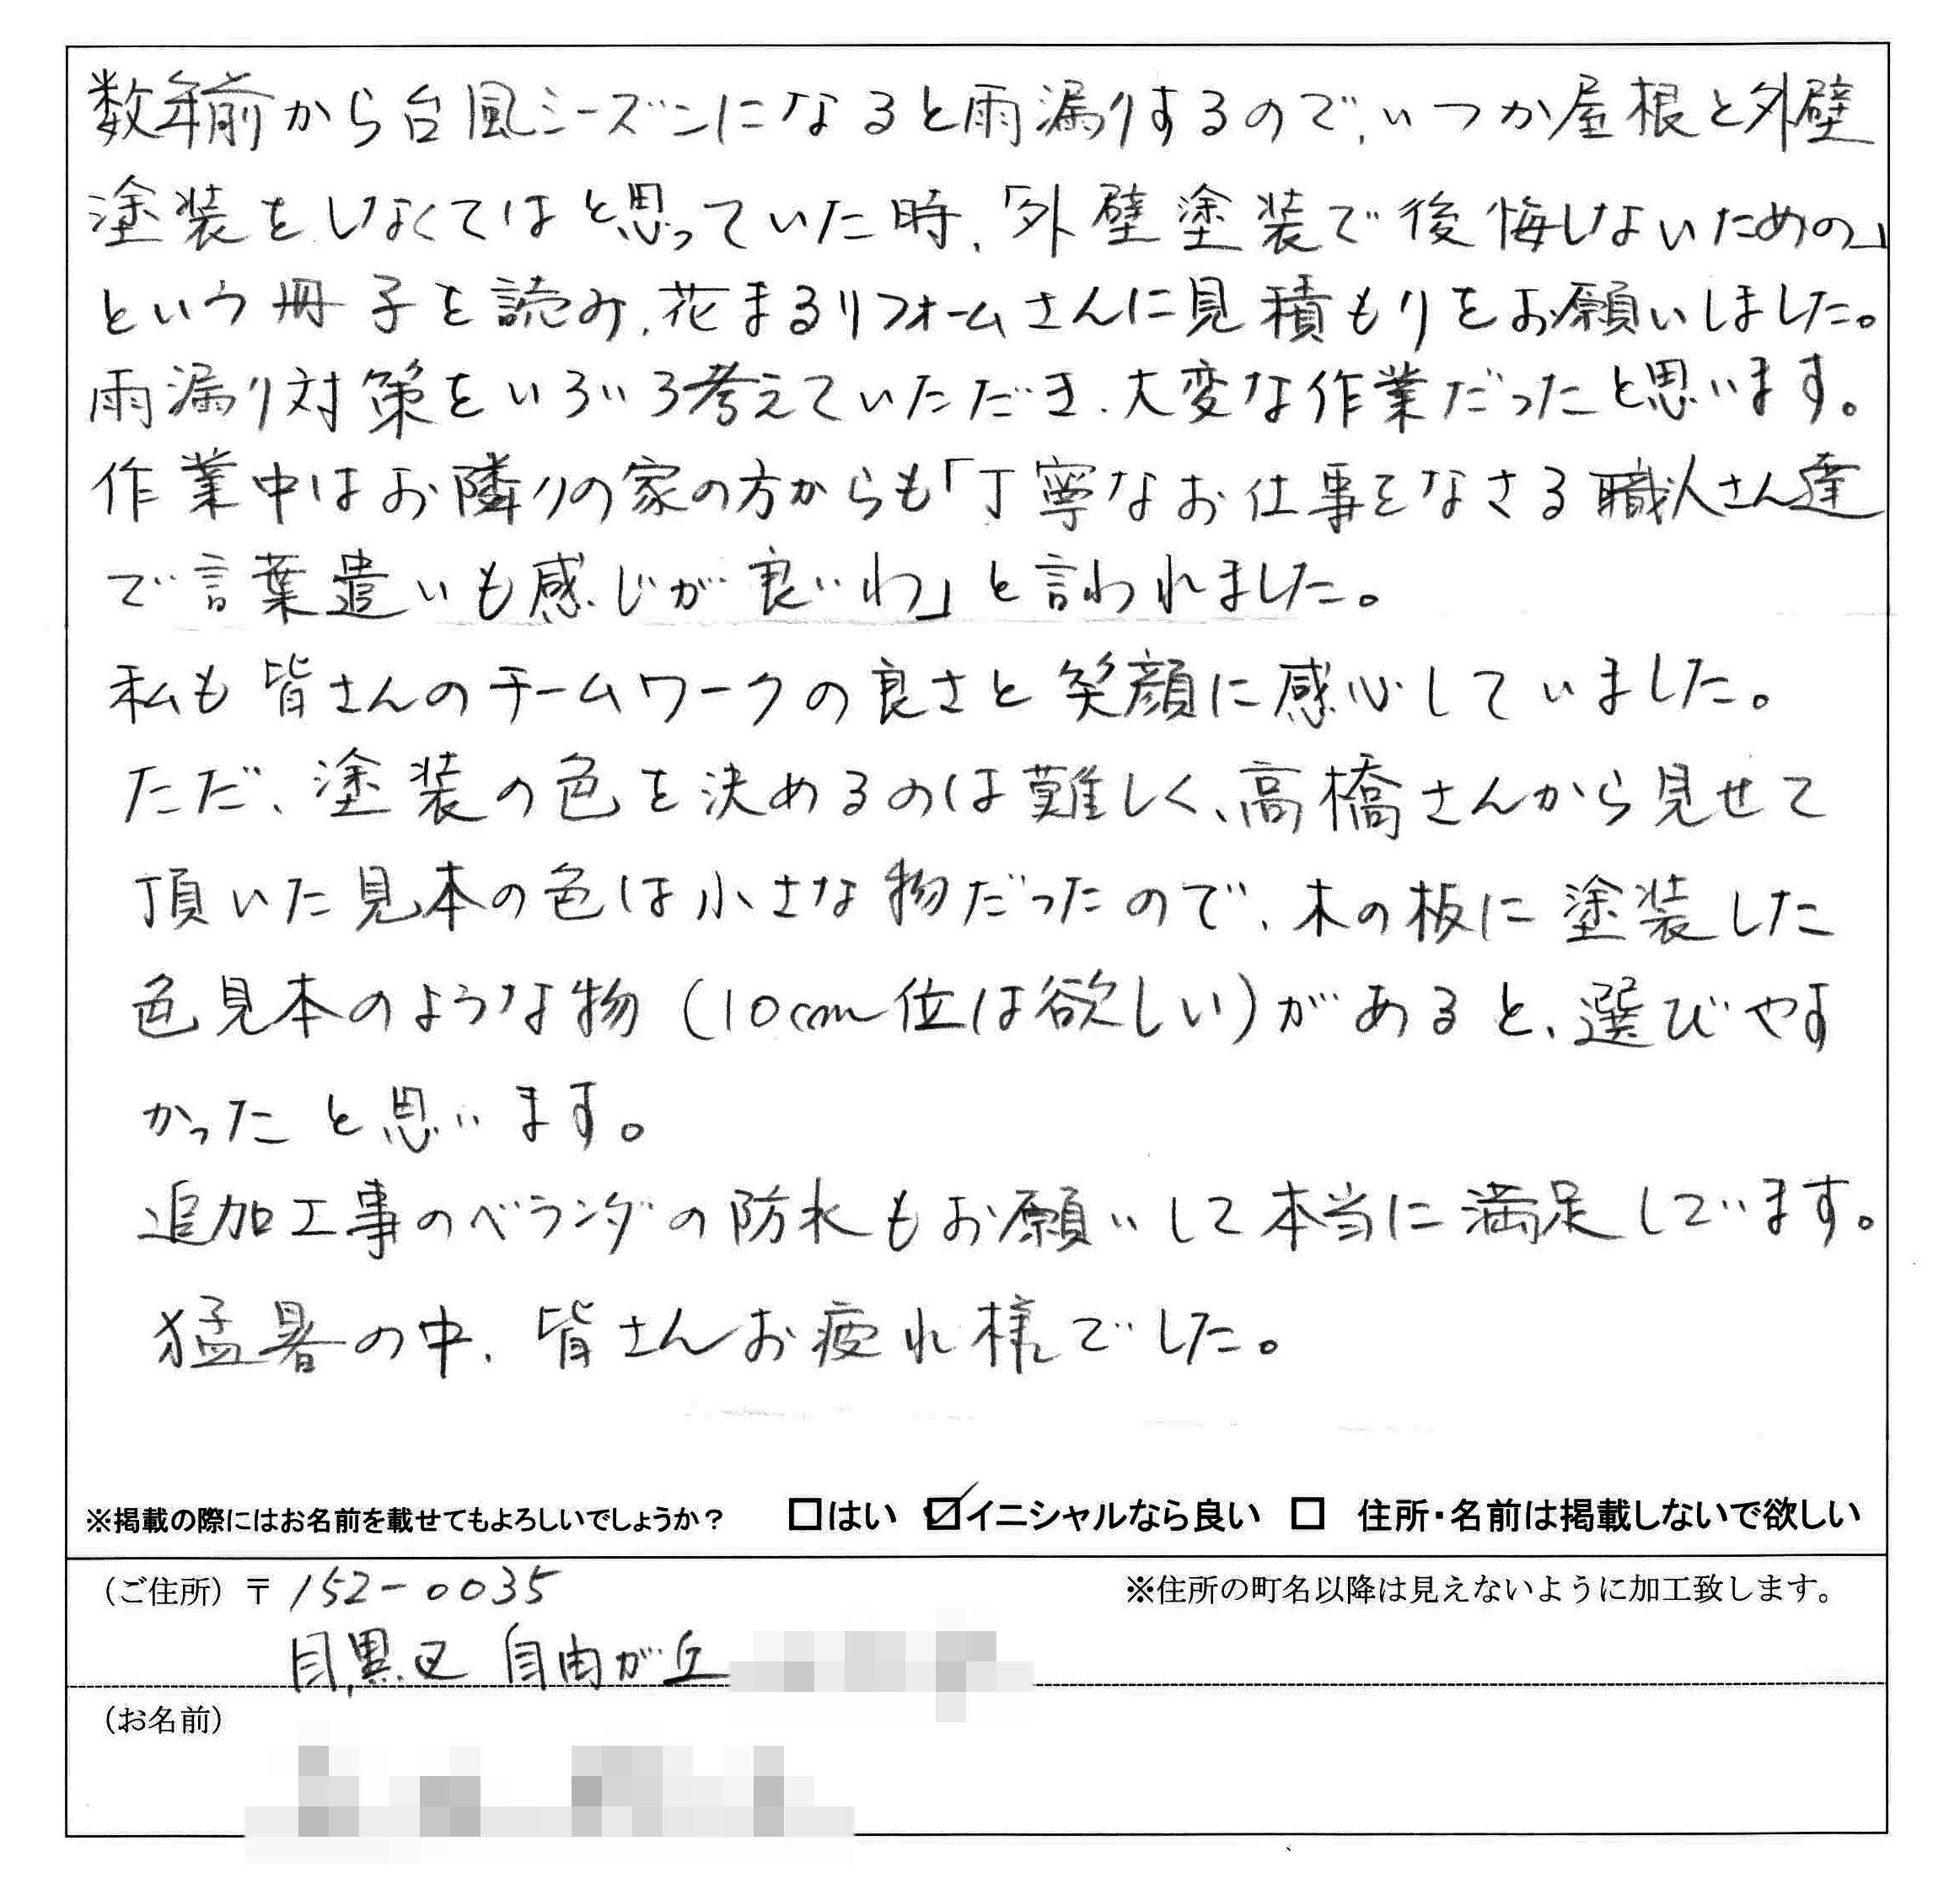 数年前から台風シーズンになると雨漏りするので、いつか屋根と外壁
塗装をしなくてはと思っていた時、「外壁塗装で後悔しないための」
という冊子を読み、花まるリフォームさんに見積もりをお願いしました。
雨漏り対策をいろいろ考えていただき、大変な作業だったと思います。
作業中はお隣りの家の方からも「丁寧なお仕事をなさる職人さん達
で言葉遣いも感じが良いわ」と言われました。
私も皆さんのチームワークの良さと笑顔に感心していました。
ただ、塗装の色を決めるのは難しく、高橋さんから見せて
頂いた見本の色は小さな物だったので、木の板に塗装した
色見本のような物（10cm位は欲しい）があると、選びやす
かったと思います。
追加工事のベランダの防水もお願いして本当に満足しています。
猛暑の中、皆さんお疲れ様でした。
※掲載の際にはお名前を載せてもよろしいでしょうか？ □はい ☑イニシャルなら良い □ 住所・名前は掲載しないで欲しい
（ご住所）〒152-0035 ※住所の町名以降は見えないように加工致します。
目黒区 自由が丘
（お名前）